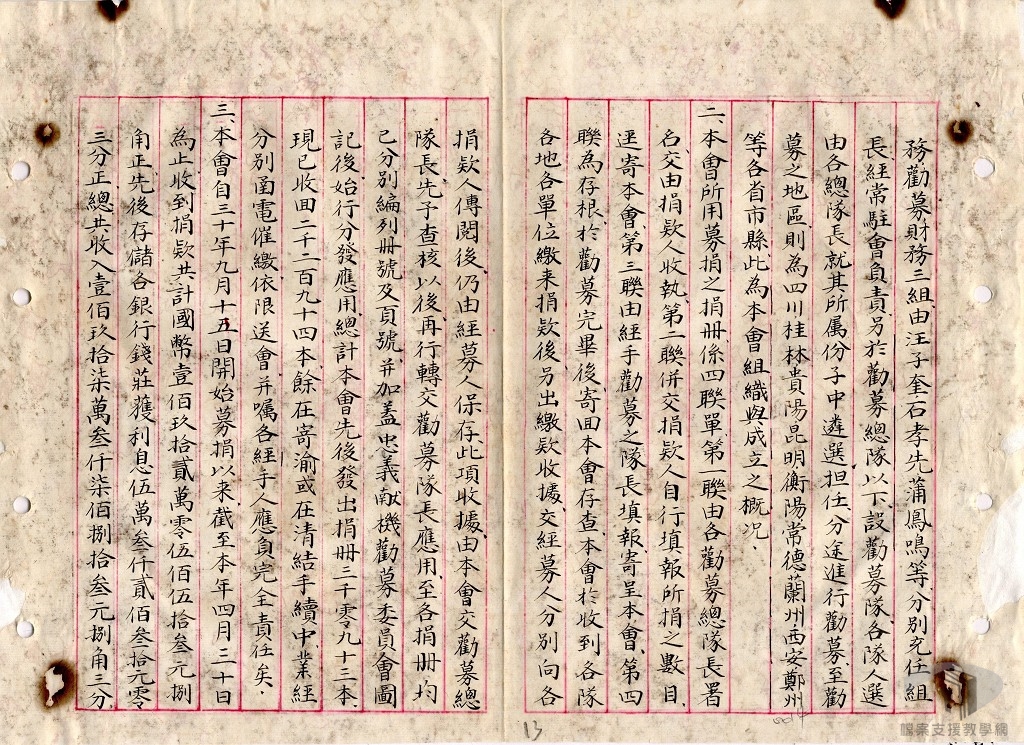 務勸募財務三組、由汪子奎石孝先蒲鳳鳴等、分別充任組
長經常駐會負責、另於勸募總隊以下設勸募隊、各隊人選
由各總隊長就其所屬份子中遴選担任、分途進行勸募、至勸
募之地區、則為四川桂林貴陽昆明衡陽常德蘭州西安鄭州
等各省市縣、此為本會組織與成立之概況、
二、本會所用募捐之捐冊係四聯單、第一聯由各勸募總隊長署
名、交由捐欵人收執、第二聯併交捐欵人自行填報所捐之數目、
逕寄本會、第三聯由經手勸募之隊長填報寄呈本會、第四
聯為存根、於勸募完畢後、寄回本會存查、本會於收到各隊
各地各單位繳來捐欵後、另出繳欵收據、交經募人分別向各
捐欵人傳閱後、仍由經募人保存、此項收據、由本會交勸募總
隊長、先予查核以後、再行轉交勸募隊長應用、至各捐冊均
已分別編列冊號及頁號、并加蓋忠義献機勸募委員會圖
記後、始行分發應用、總計本會先後發出捐冊三千零九十三本、
現已收回二千二百九十四本、餘在寄渝或在清結手續中、業經
分別函電催繳、依限送會、并囑各經手人應負完全責任矣、
三、本會自三十年九月十五日開始募捐以來、截至本年四月三十日
為止、收到捐欵共計國幣壹佰玖拾貳萬零伍佰伍拾叁元捌
角正、先後存儲各銀行錢莊、獲利息伍萬叁仟貳佰叁拾元零
三分正、總共收入壹佰玖拾柒萬叁仟柒佰捌拾叁元捌角三分
13
檔案支援教學網